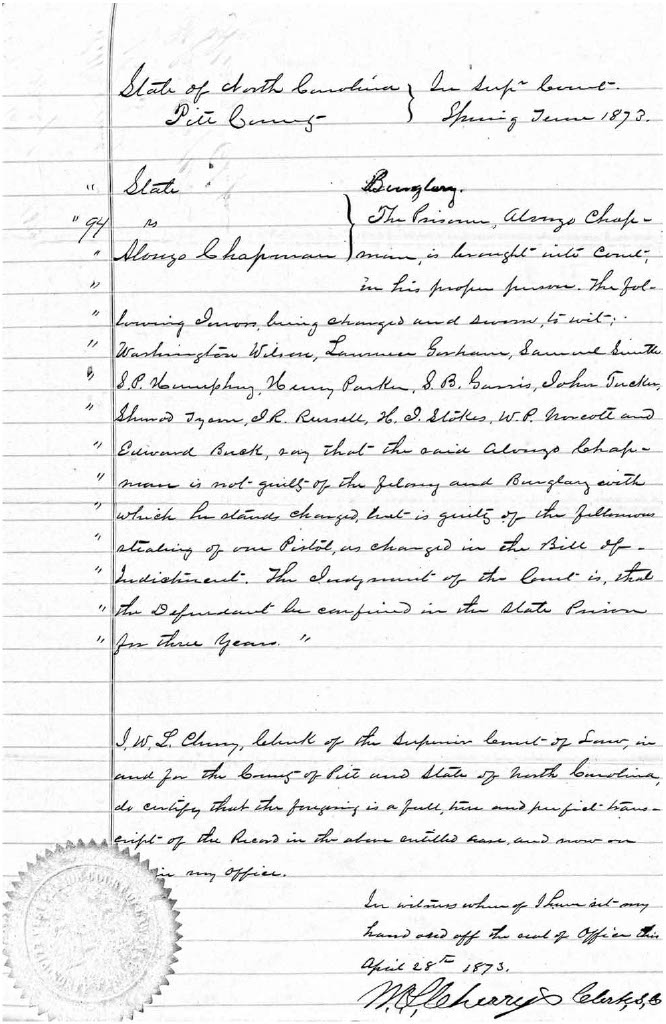 State of North Carolina } In Supr Court.
Pitt County } Spring Term 1873.
" State } Burglary.
" 94 vs } The Prisoner, Alonzo Chap-
" Alonzo Chapman } man, is brought into Court,
" in his proper person. The fol-
" lowing Jurors, being charged and sworn, to wit;
" Washington Wilson, Laurence Gorham, Samuel Smith
" S.P. Humphrey, Henry Parker, S.B. Garris, John Tucker,
" Sherod Tyson, J.R. Russell, H.J. Stokes, W.P. Norcott and
" Edward Buck, say that the said Alonzo Chap-
" man is not guilty of the felony and Burglary with
" which he stands charged, but is guilty of the fellonious
" stealing of one Pistol, as charged in the Bill of
" Indictment. The Judgment of the Court is, that
" the Defendant be confined in the State Prison
" for three years. "
I, W. L. Cherry, Clerk of the Superior Court of Law, in
and for the County of Pitt and State of North Carolina,
do certify that the foregoing is a full, true and perfect trans-
cript of the Record in the above entitled case, and now on
in my Office.
In witness where of I have set my
hand and off the seal of Office this
April 28th 1873.
W. L. Cherry Clerk, S.C.